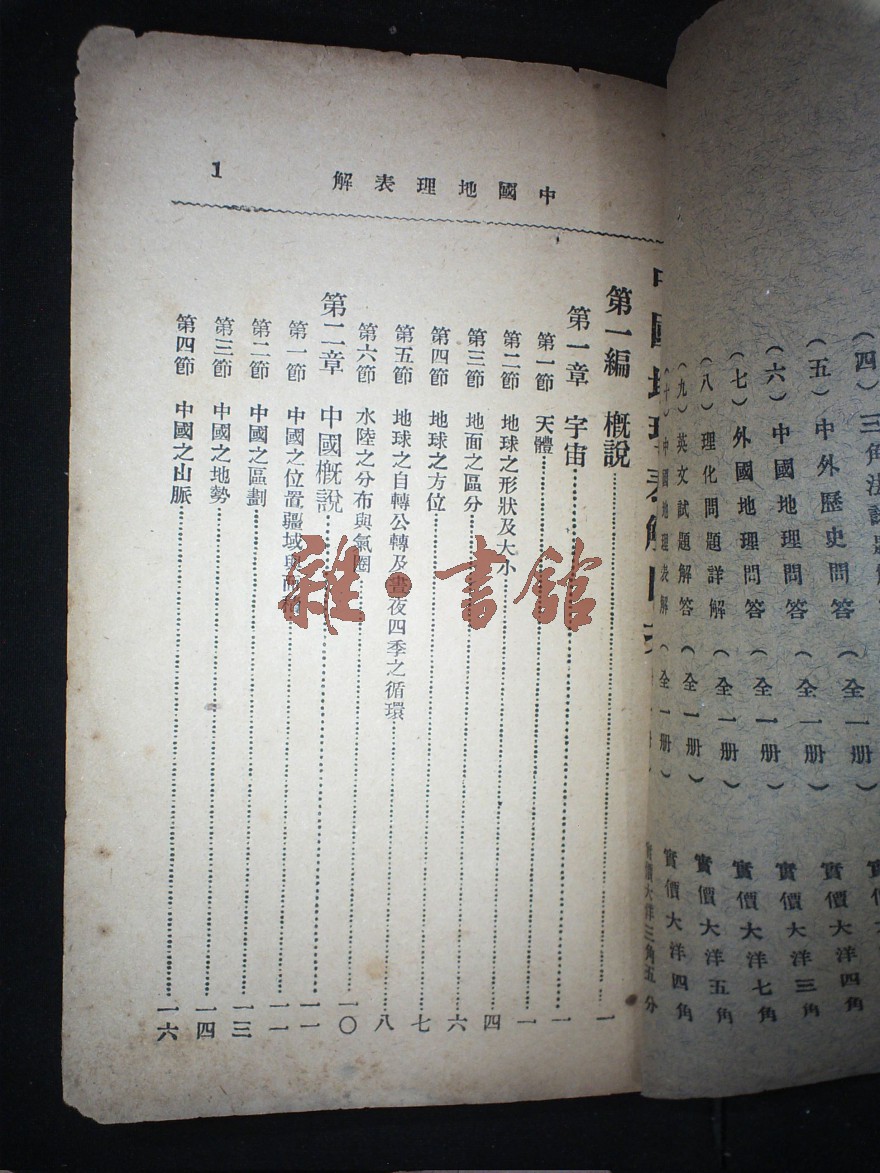 (四)三角法試題解 (全一册) 實
(五)中外歷史問答 (全一册) 實價大洋四角
(六)中國地理問答 (全一册) 實價大洋三角
(七)外國地理問答 (全一册) 實價大洋七角
(八)理化問題詳解 (全一册) 實價大洋五角
(九)英文試題解答 (全一册) 實價大洋四角
(十)中國地理表解 (全一册) 實價大洋三角五分
中國地理表解
1
中國地理表解目
第一編 概說……一
第一章 宇宙……一
第一節 天體……一
第二節 地球之形狀及大小……四
第三節 地面之區分……六
第四節 地球之方位……七
第五節 地球之自轉公轉及晝夜四季之循環……八
第六節 水陸之分布與氣圈……一〇
第二章 中國概說……一一
第一節 中國之位置疆域與面積……一一
第二節 中國之區劃……一三
第三節 中國之地勢……一四
第四節 中國之山脈……一六
雜·書館